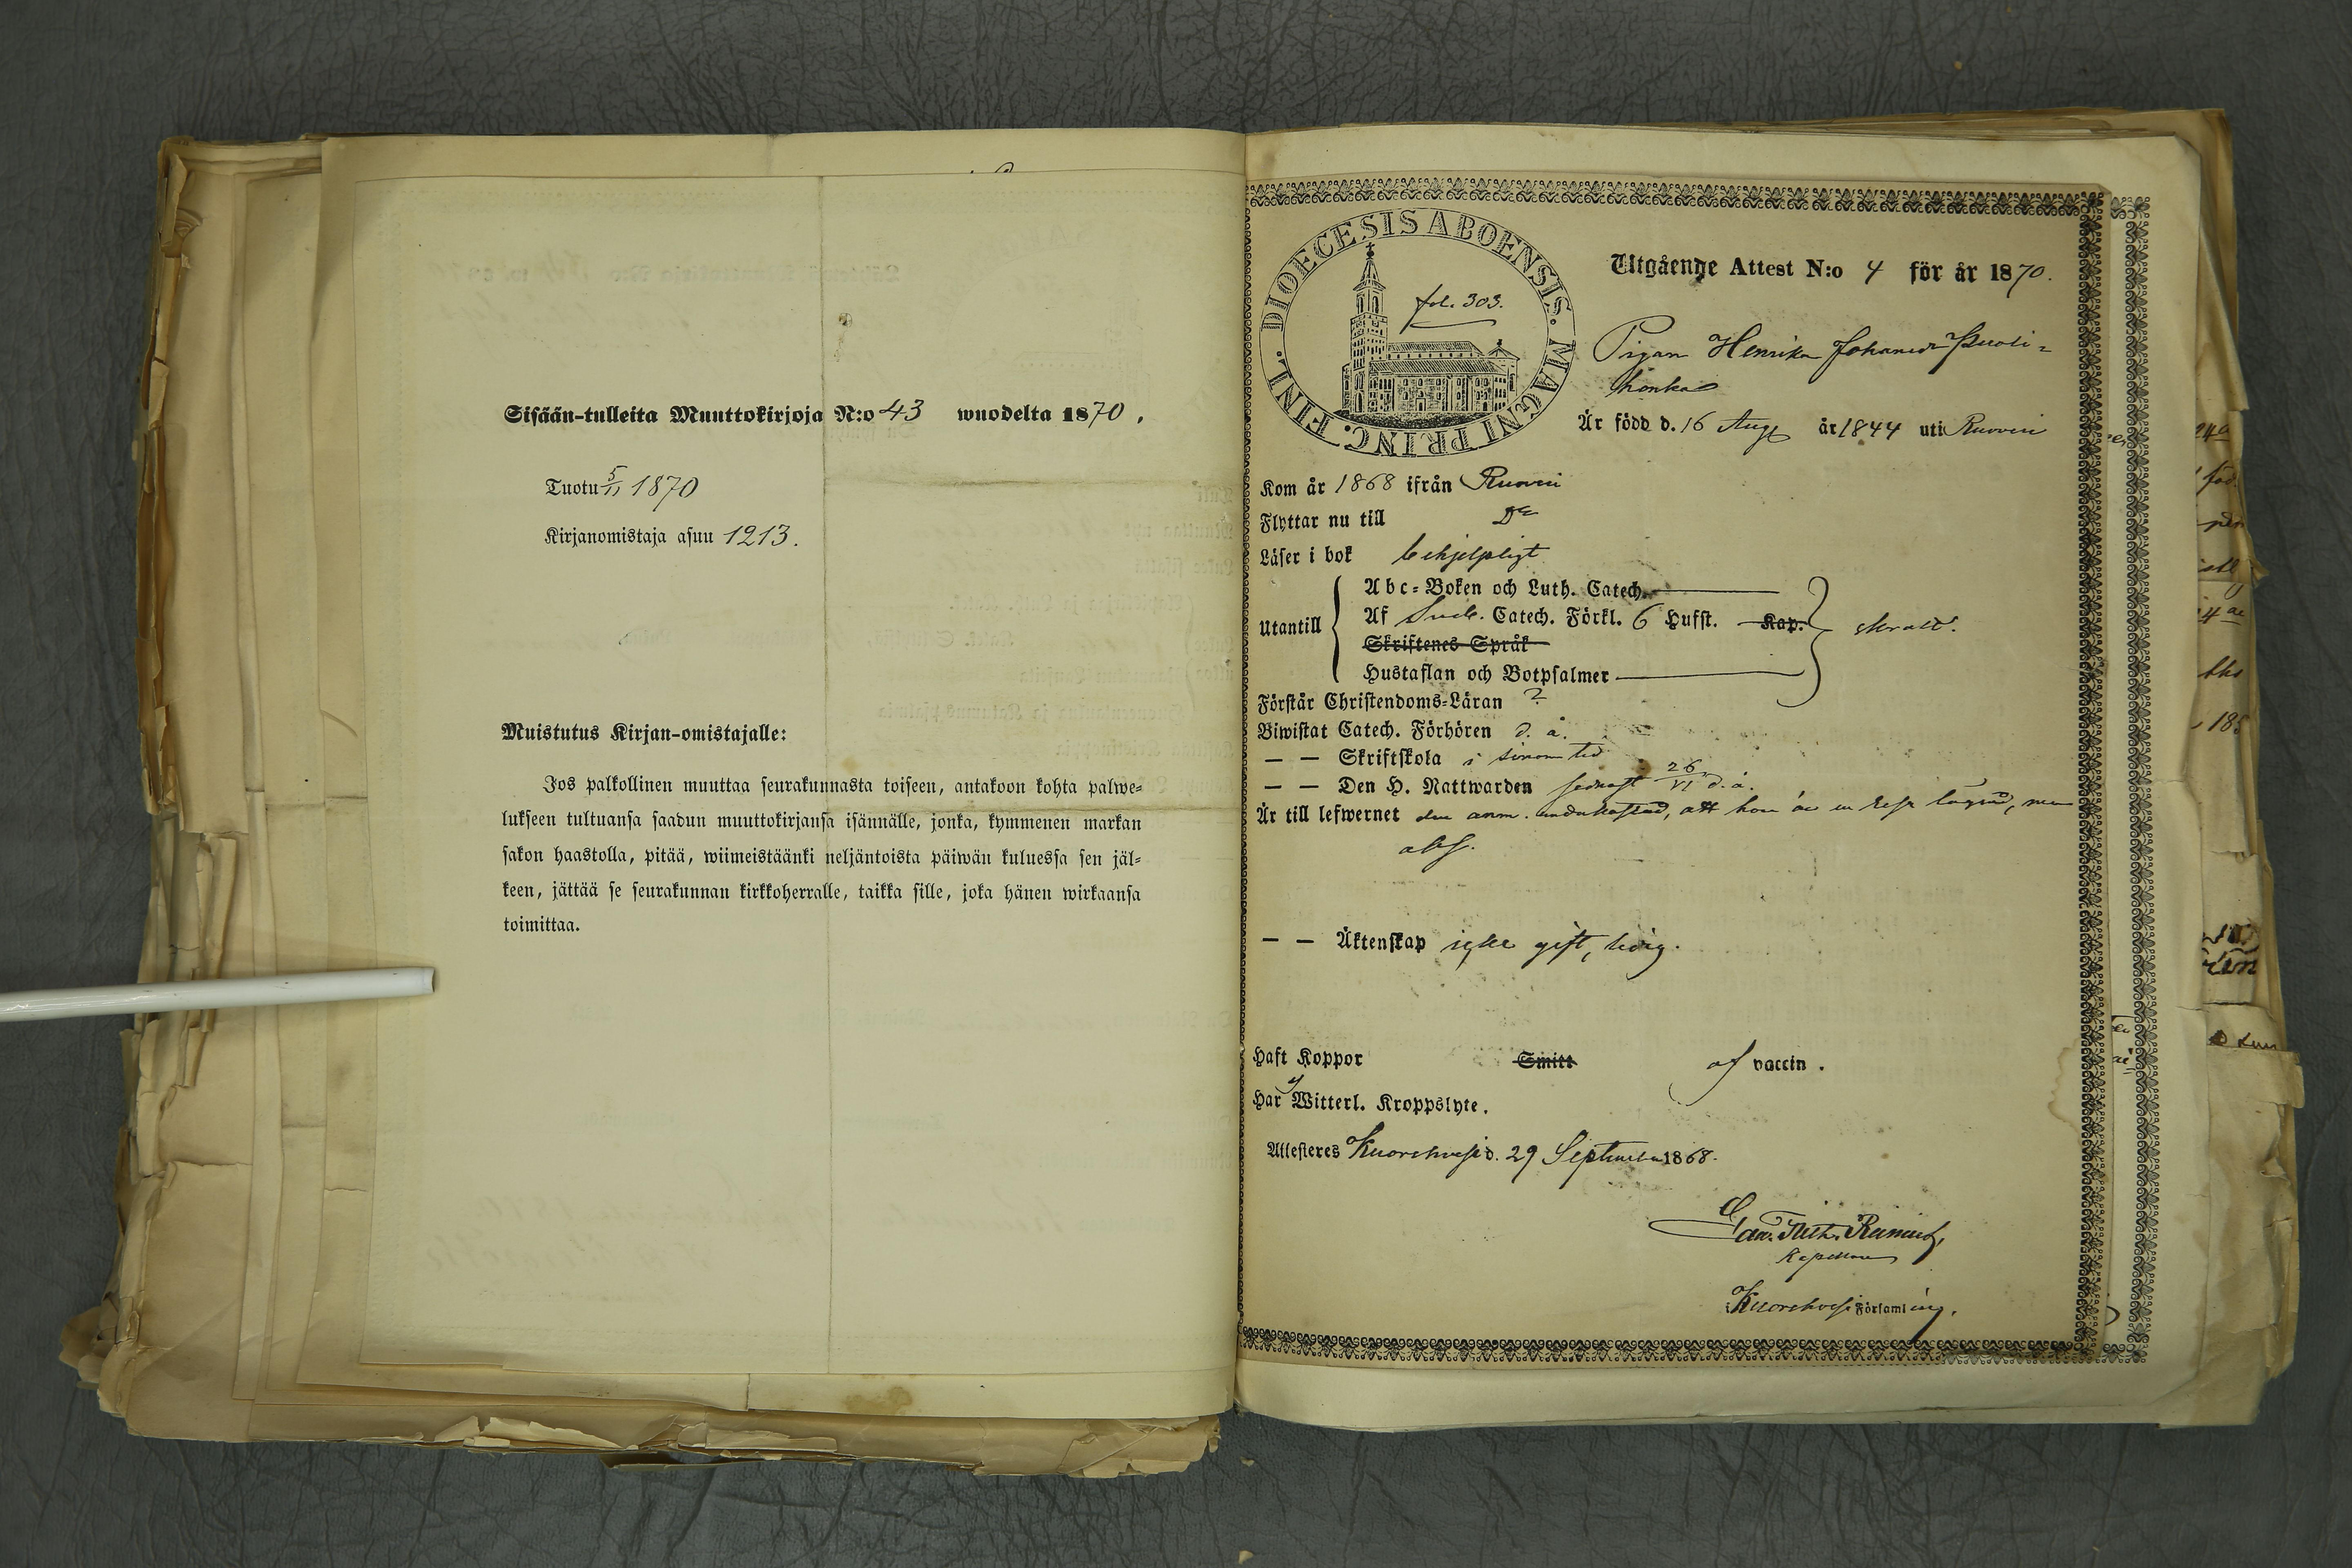 Sisään-tulleita Muuttokirjoja N:o 43 wuodelta 1870.
Tuotu 5/11 1870
Kirjanomistaja asuu 1213.
Muistutus Kirjan-omistajalle:
Jos palkollinen muuttaa seurakunnasta toiseen, antakoon kohta palwe=
lukseen tultuansa saadun muuttokirjansa isännälle, jonka, kymmenen markan
sakon haastolla, pitää, wiimeistäänki neljäntoista päiwän kuluessa sen jäl=
keen, jättää se seurakunnan kirkkoherralle, taikka sille, joka hänen wirkaansa
toimittaa.
DIOECESIS ABOENSIS. MAGNI PRINC. FINL.
fol. 303.
Utgående Attest N:o 4 för år 1870.
Pigan Henrika Johanna
honka
Är född d. 16 Aug år 1844 uti Ruovesi
Kom år 1868 ifrån Ruovesi
Flyttar nu till Do
Läser i bok behjelpligt
Utantill
Abc=Boken och Luth. Catech.
Af Sveb. Catech. Förkl. 6 Hufst. Kap.
Skriftenes Språk
Hustaflan och Botpsalmer
skralt.
Förstår Christendoms=Läran ?
Biwistat Catech. Förhören d. å.
— — Skriftskola i sinom tid
— — Den H. Nattwarden sednast 26/VI d. å.
Är till lefwernet den anm. att hon är en resp lägrad, men
abs.
— — Äktenskap icke gift, ledig.
Haft Koppor Smitt af vaccin.
Har ej Witterl. Kroppslyte.
Attesteres Kuorehvesi d. 29 September 1868.
Kapellan
i Kuorehvesi Församling.